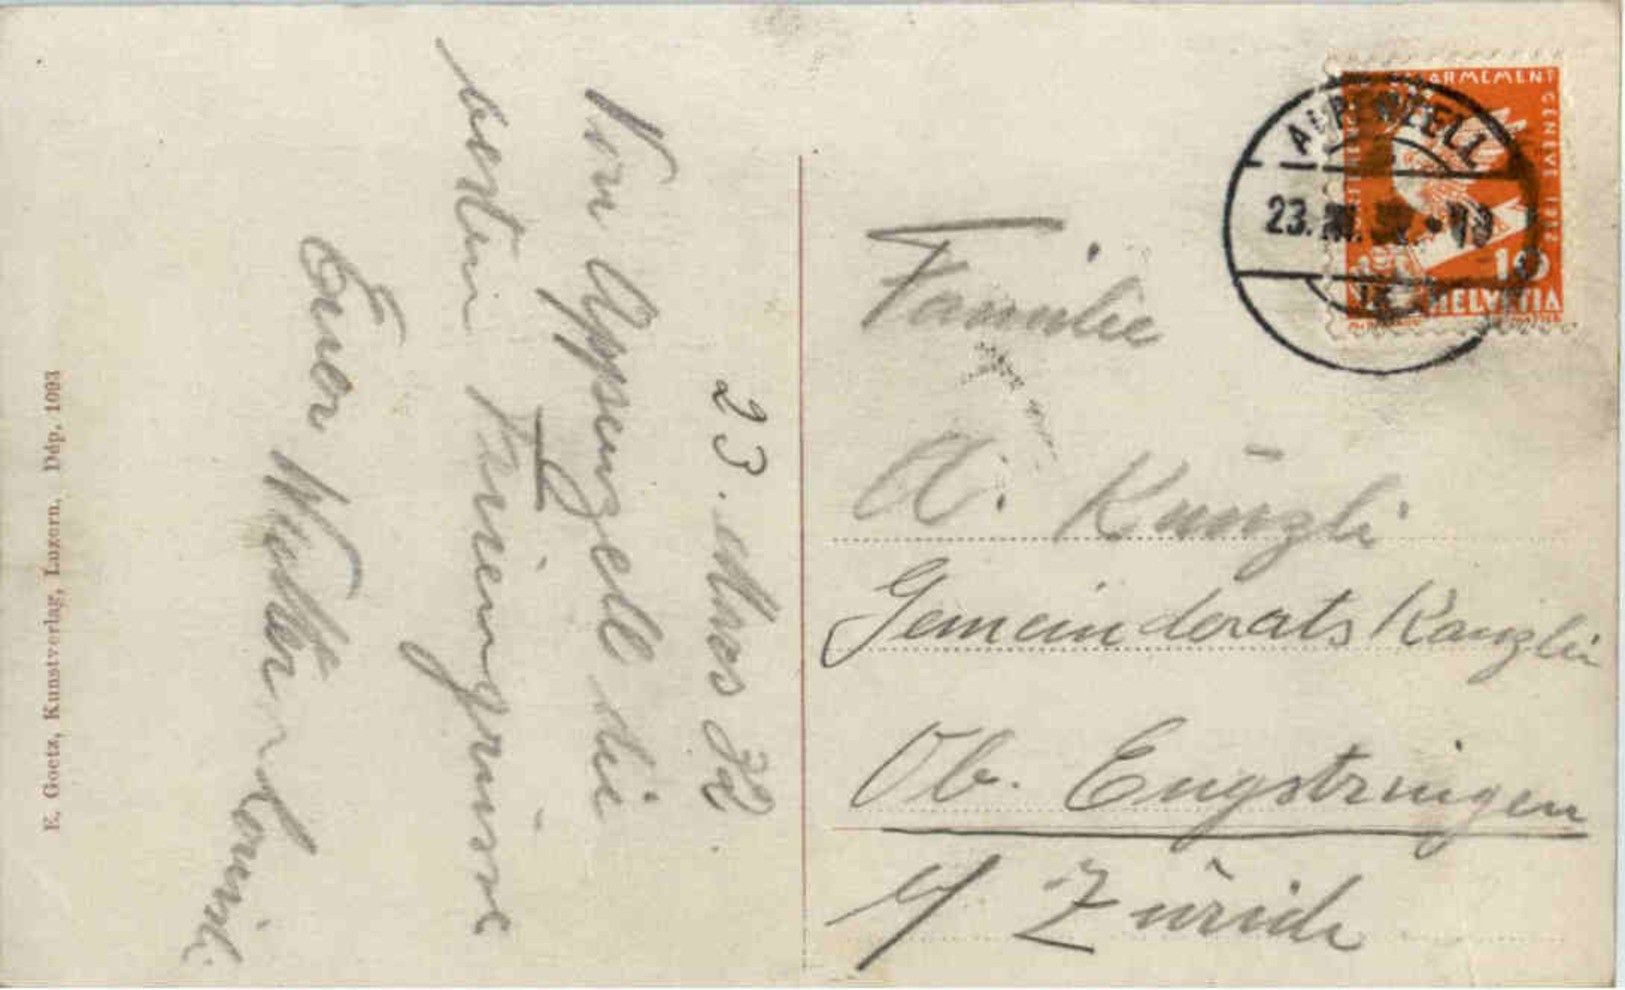 E. Goetz, Kunstverlag, Luzern. Dép. 1093
23. März 32.
Von Appenzell die
besten Feriengrüsse
Euer Walter
ARMEMENT
GENEVE 1932
10
HELVETIA
APPENZELL
23.
Familie
A. Künzli
Gemeinderats Kanzlei
Ob. Engstringen
b/ Zürich